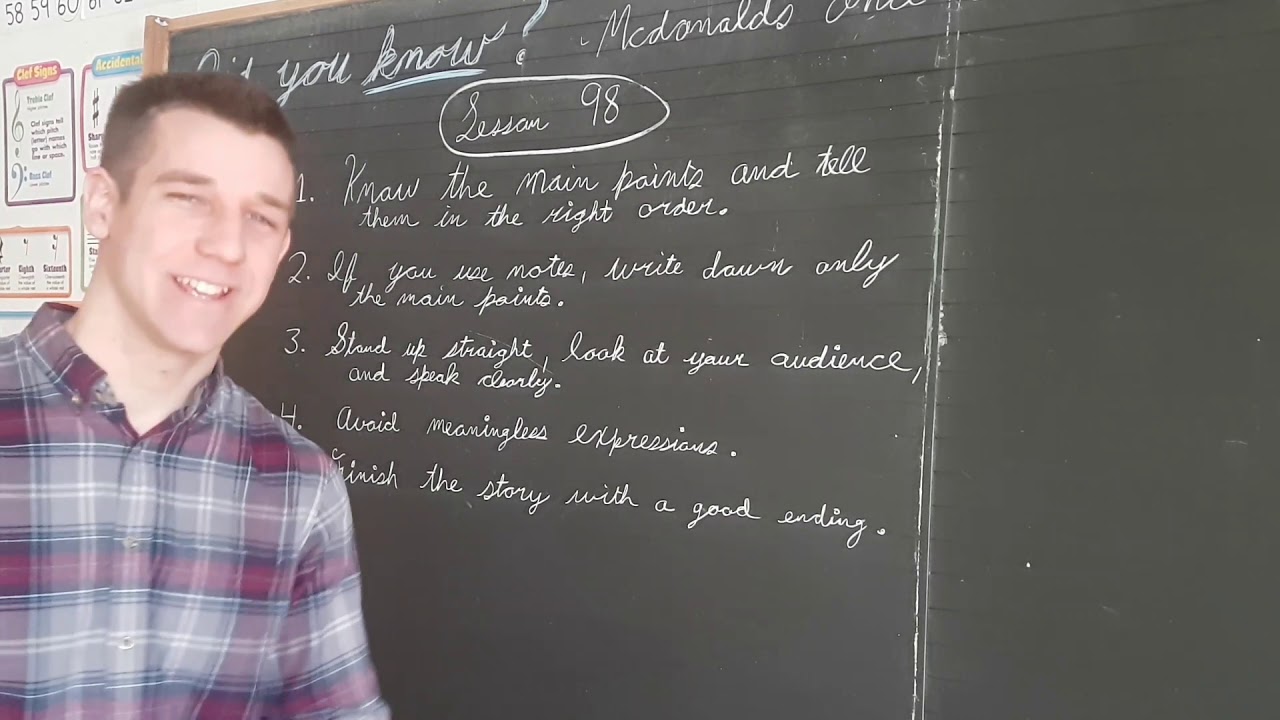 58 59 60 61
Did you know? - Mcdonalds once
Lesson 98
1. Know the main points and tell
them in the right order.
2. If you use notes, write down only
the main points.
3. Stand up straight, look at your audience,
and speak clearly.
4. Avoid meaningless expressions.
Finish the story with a good ending.
Clef Signs
Treble Clef
Clef signs tell
which pitch
(letter) names
go with which
line or space.
Bass Clef
Accidental
Sharp
Eighth
Sixteenth